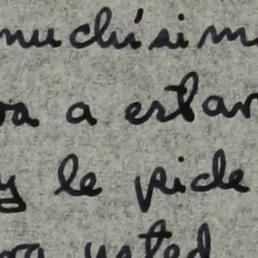 muchísim
va a estar
y le pide
ra usted